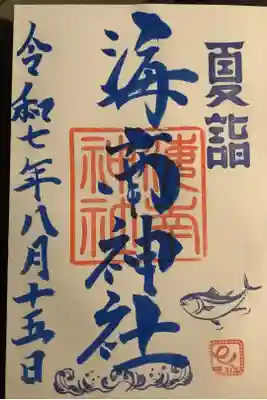 夏詣
海南神社
海南神社
令和七年八月十五日